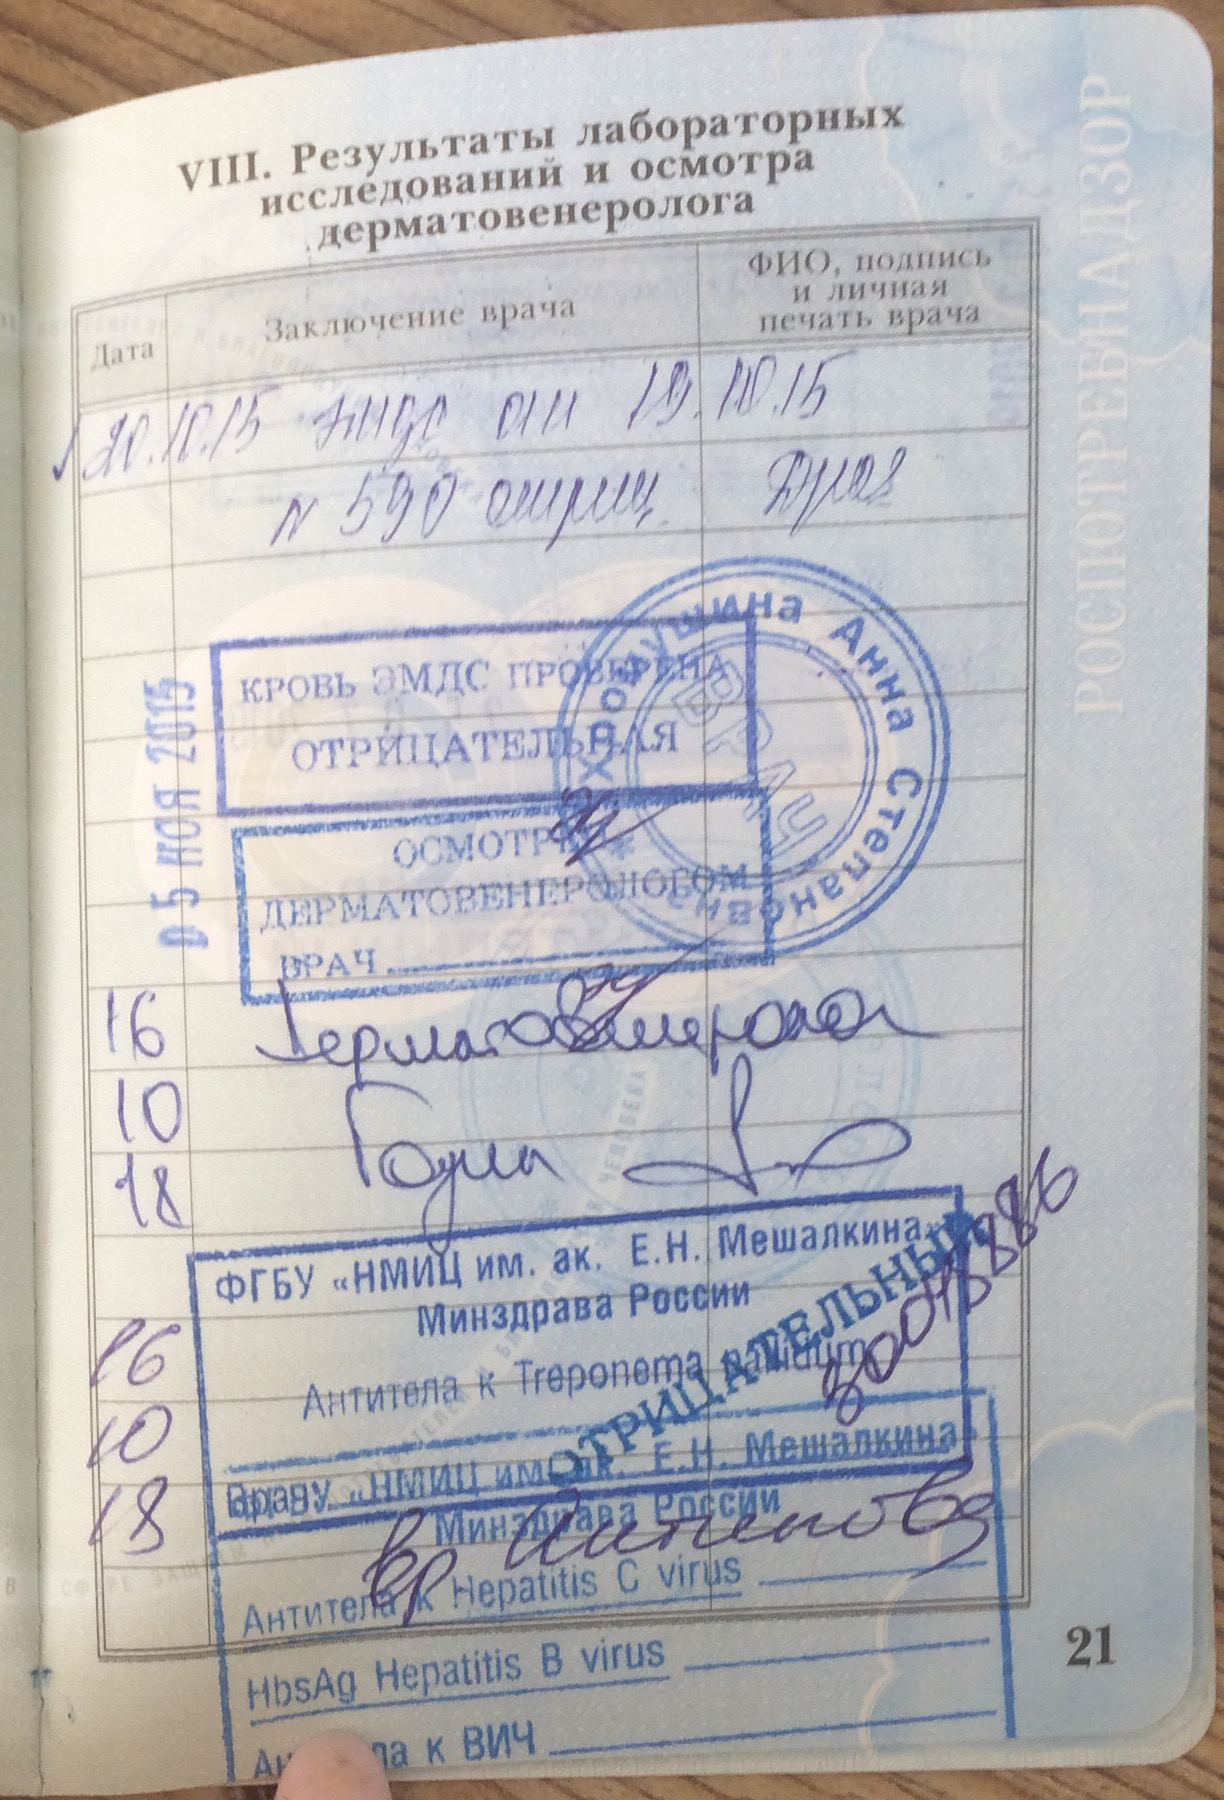 VIII. Результаты лабораторных
исследований и осмотра
дерматовенеролога
Дата
Заключение врача
ФИО, подпись
и личная
печать врача
РОСПОТРЕБНАДЗОР
20.10.15 от 19.10.15
N 590 отриц
05 НОЯ 2015
КРОВЬ ЭМДС ПРОВЕРЕНА
ОТРИЦАТЕЛЬНАЯ
Хромушина Анна Степановна
ВРАЧ
ОСМОТРЕН
ДЕРМАТОВЕНЕРОЛОГОМ
ВРАЧ
16 Дерматовенеролог
10 Годен
18
ФГБУ «НМИЦ им. ак. Е.Н. Мешалкина
Минздрава России
Антитела к Treponema pallidum
ОТРИЦАТЕЛЬНЫЙ
16
10
18
Врач
ФГБУ «НМИЦ им. ак. Е.Н. Мешалкина
Минздрава России
Антитела к Hepatitis C virus
HbsAg Hepatitis B virus
к ВИЧ
21